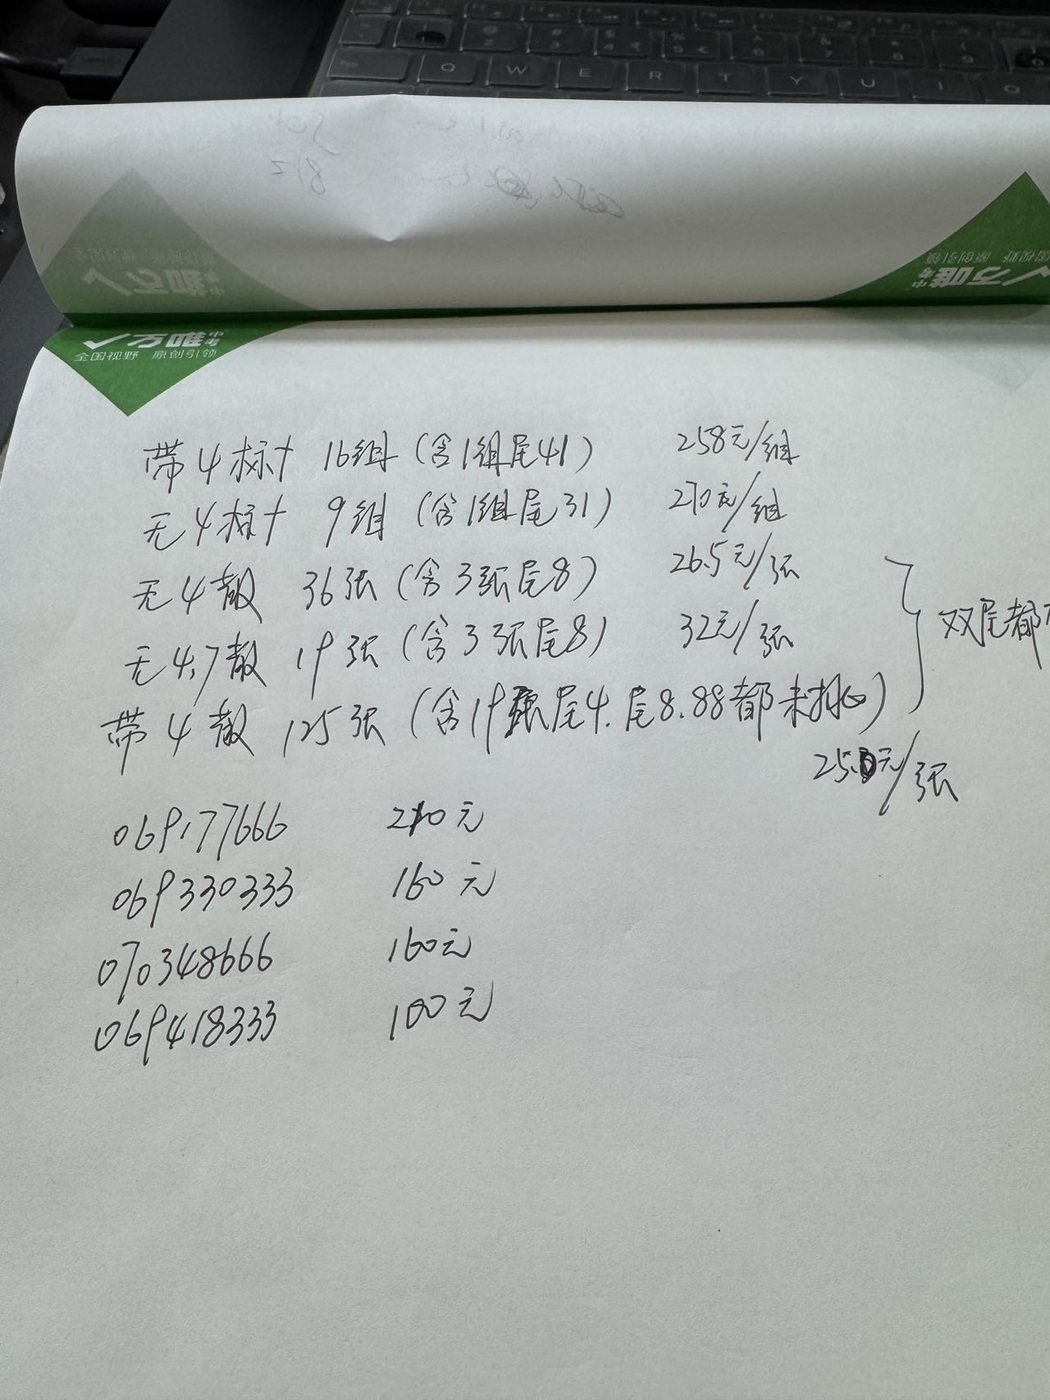 Q W E R T Y U I
万唯中考
全国视野 原创引领
带4标十 16组（含1组尾41） 258元/组
无4标十 9组（含1组尾31） 270元/组
无4散 36张（含3张尾8） 26.5元/张
无4.7散 19张（含3张尾8） 32元/张
双尾都
带4散 125张（含19张尾4.尾8.88都未挑）
25.0元/张
069177666 210元
069330333 160元
070348666 160元
069418333 100元